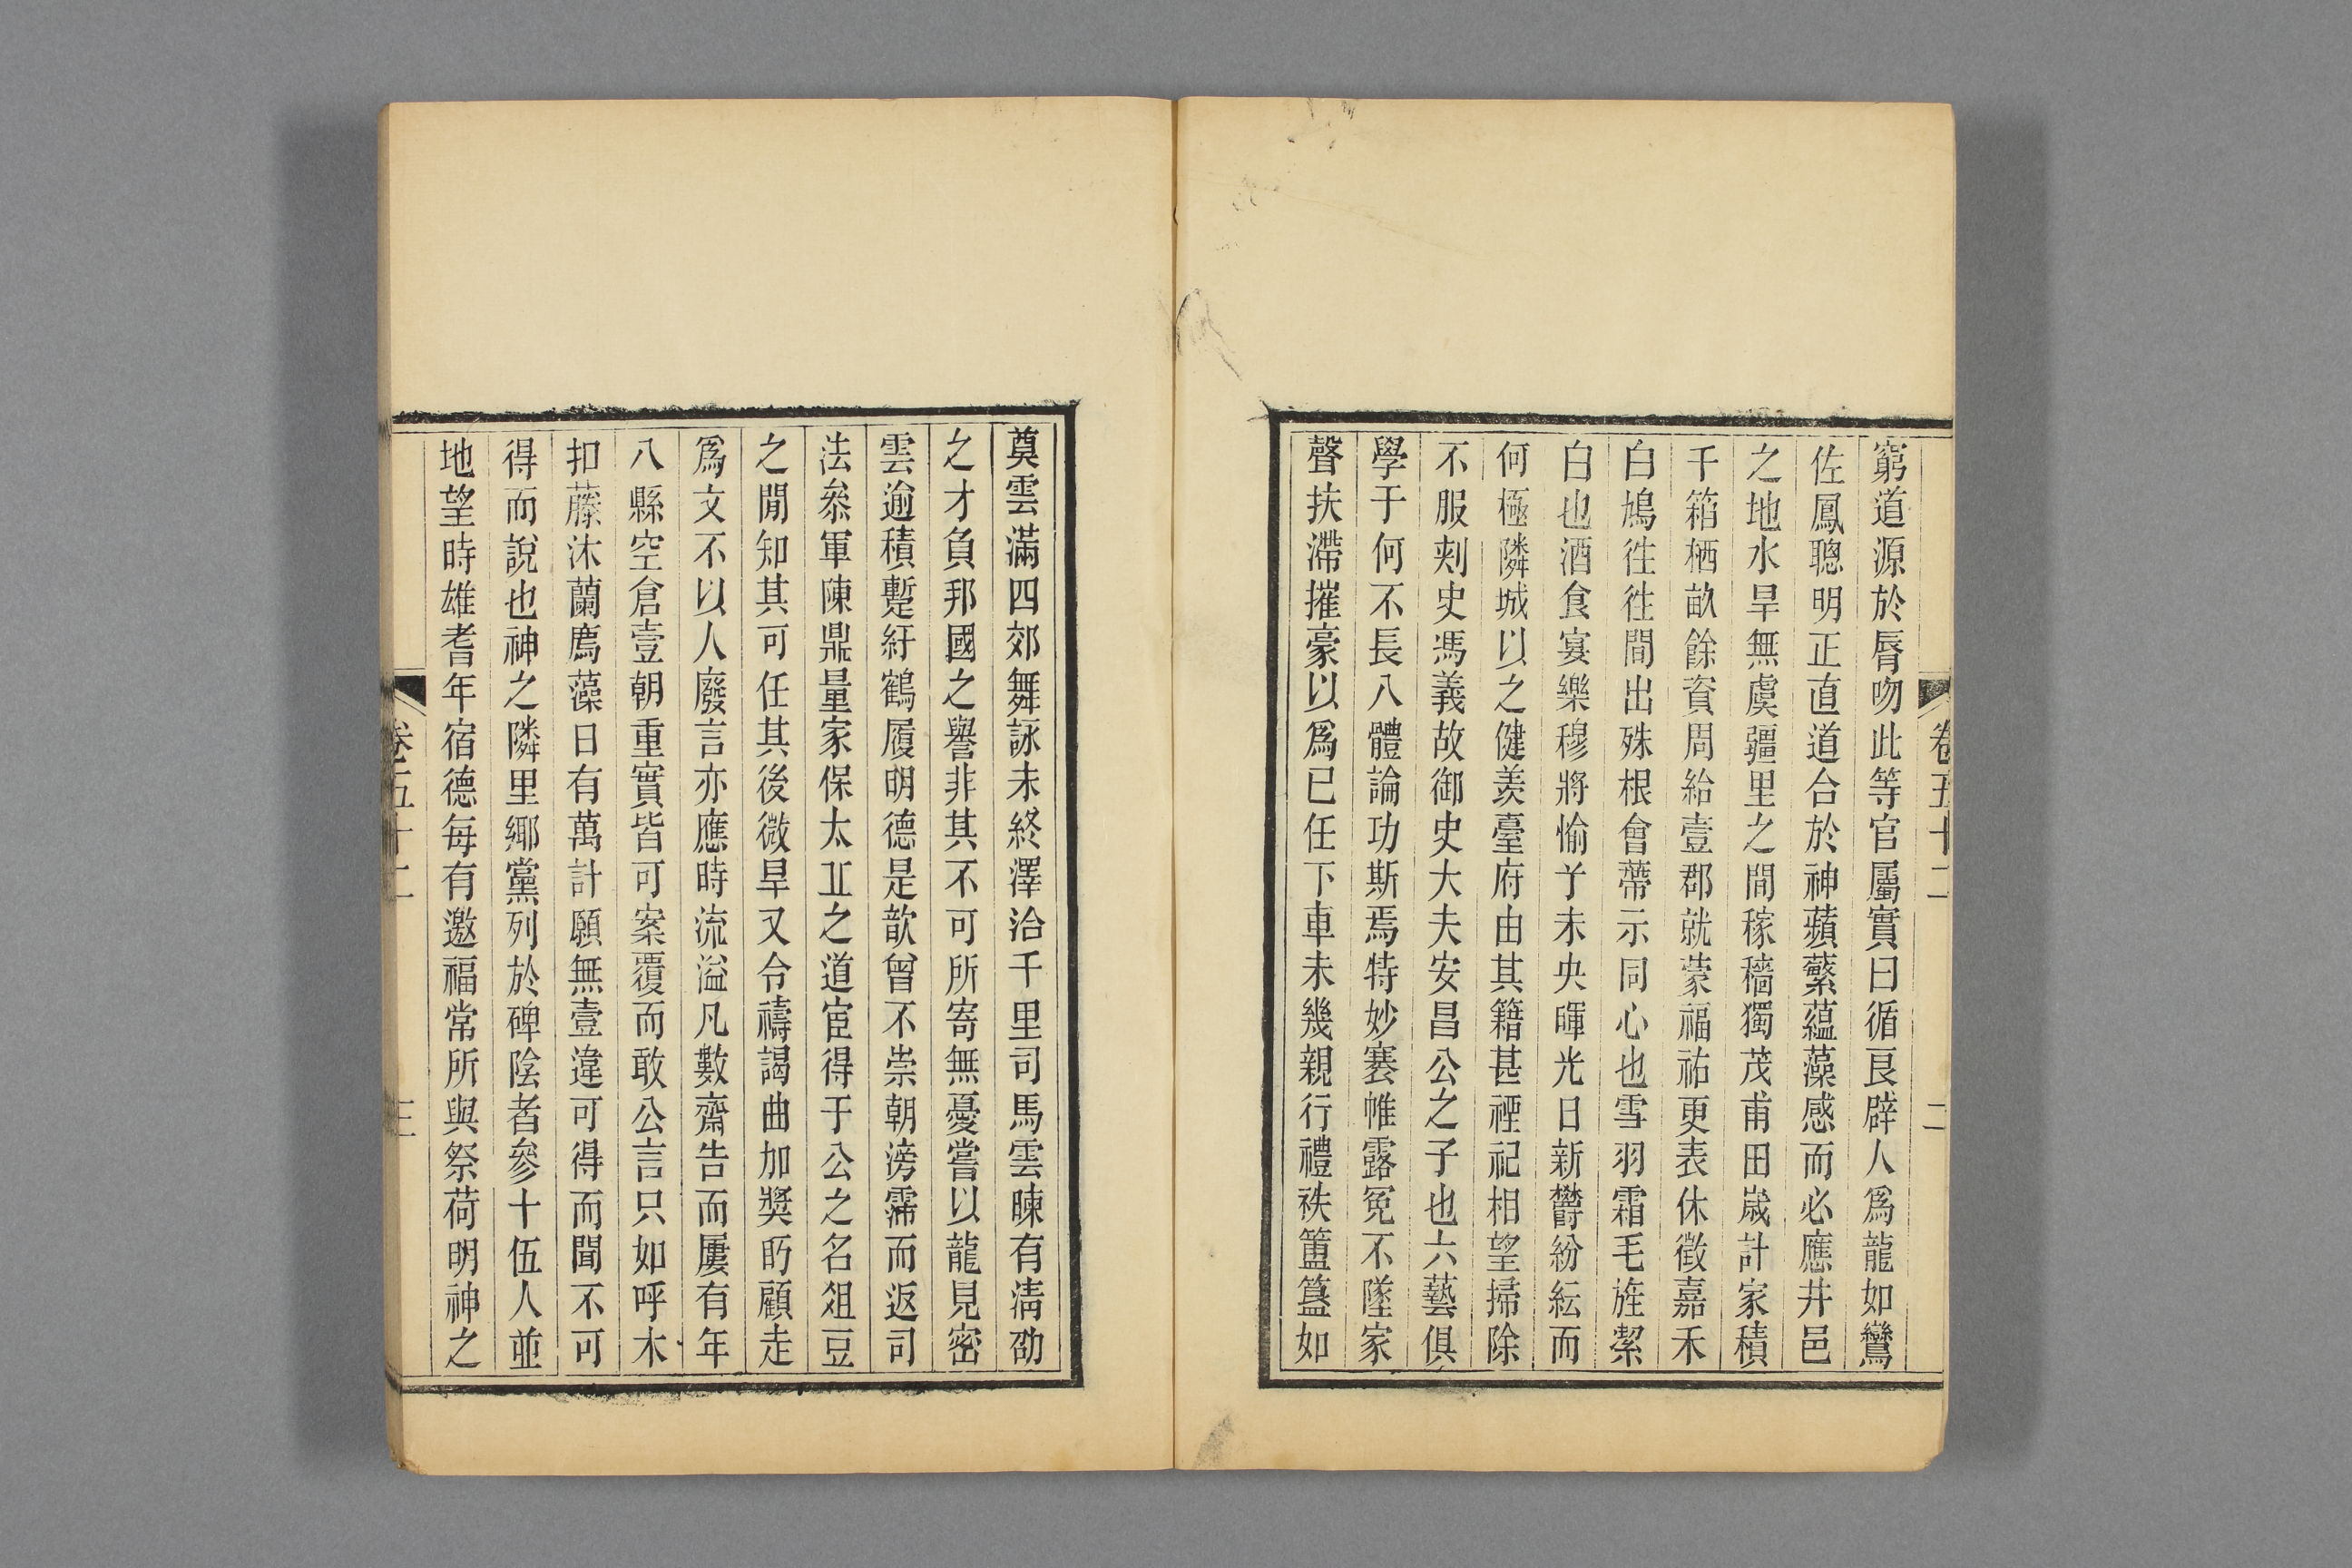 窮道源於脣吻此等官屬實曰循良辟人爲龍如鸞
佐鳳聰明正直道合於神蘋蘩蘊藻感而必應井邑
之地水旱無虞疆里之間稼穡獨茂甫田歲計家積
千箱栖畝餘資周給壹郡就蒙福祐更表休徵嘉禾
白鳩徃徃間出殊根會蔕示同心也雪羽霜毛旌絜
白也酒食宴樂穆將愉兮未央暉光日新欝紛紜而
何極隣城以之健羨臺府由其籍甚禋祀相望掃除
不服刾史馮義故御史大夫安昌公之子也六藝俱
學于何不長八體論功斯焉特妙褰帷露冕不墜家
聲扶滯摧豪以爲已任下車未幾親行禮袟簠簋如
卷五十二
二
奠雲滿四郊舞詠未終澤洽千里司馬雲暕有清劭
之才負邦國之譽非其不可所寄無憂嘗以龍見密
雲逾積蹔紆鶴履明德是歆曾不崇朝滂霈而返司
法叅軍陳鼎量家保太丘之道宦得于公之名俎豆
之閒知其可任其後微旱又令禱謁曲加奬眄顧走
爲文不以人廢言亦應時流溢凡數齋告而屢有年
八縣空倉壹朝重實皆可案覆而敢公言只如呼木
扣藤沐蘭廌藻日有萬計願無壹違可得而聞不可
得而說也神之隣里鄉黨列於碑陰者參十伍人並
地望時雄耆年宿德每有邀福常所與祭荷明神之
卷五十二
三